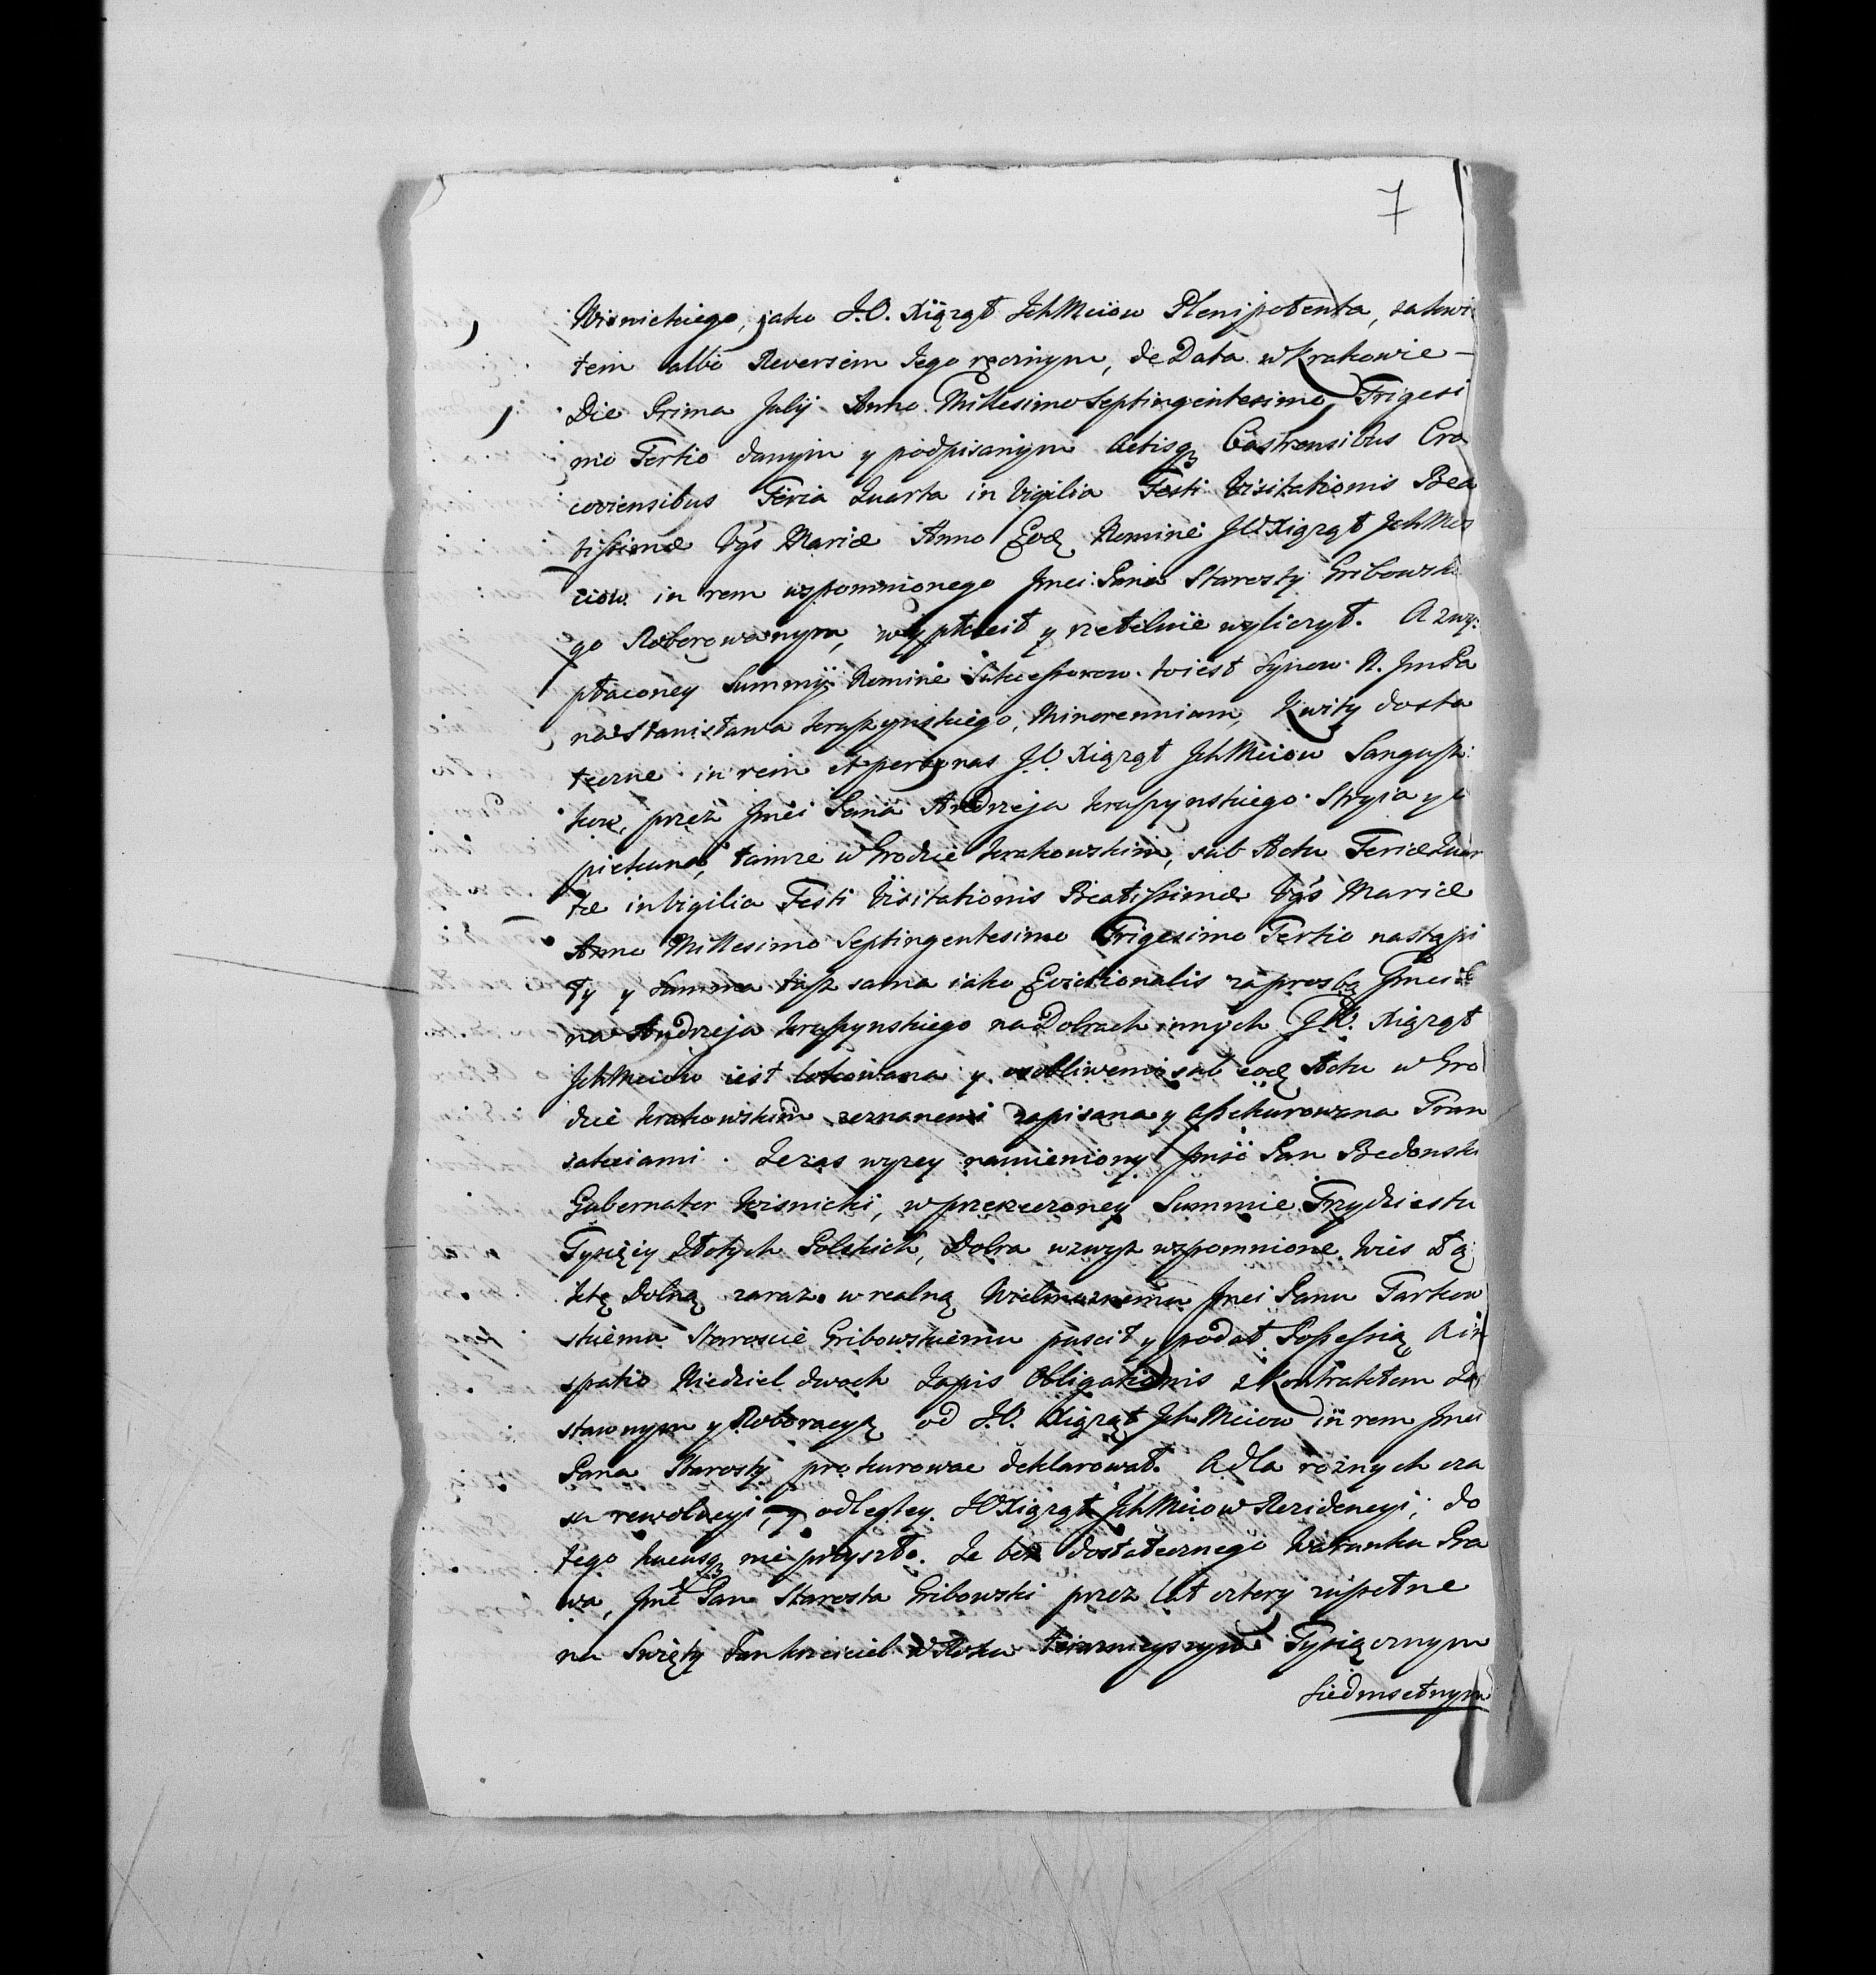 7
Wisnickiego, jako J.O. Xiąząt JchMciow Plenipotenta, zakwi
tem albo Reversem Jego ręcznym, de Data w Krakowie –
Die Prima Julij Anno Millesimo Septingentesimo Trigesi
mo Tertio danym y podpisanym Actisq Castrensibus Cra
coviensibus Feria Quarta in Vigilia Festi Visitationis Bea
tissimæ Vgs Mariæ Anno Eod Nomine JO Xiąząt JchMcs
ciow in rem wspomnionego Jmci Pana Starosty Gribowski
go Roborowanym, wypłacił y rzetelnie wyliczył. A zwy:
płaconey Summy Nomine Sukcessorow to iest Synow N. Jm Pa
na Stanisława Kraszynskiego, Minorennium, Kwity dosta
teczne in rem et personas JO Xiąząt JchMciow Sangusz:
kow, przez Jmci Pana Andrzeja Kraszynskiego Stryia y o
piekuna, tamze w Grodzie Krakowskim, sub Actu Feriæ Quar
tæ in Vigilia Festi Visitationis Beatissimæ Vgs Mariæ
Anno Millesimo Septingentesimo Trigesimo Tertio nastąpi
ły y Summa tasz sama iako Evictionalis za prosbą Jmci Pa
na Andrzeja Kraszynskiego na Dobrach innych JO. Xiąząt
JchMciow iest lokowana y osobliwemi sub eod Actu w Gro
dzie Krakowskim zeznanemi zapisana y assekurowana Tran
sakciami. Ze zas wyzey namieniony Jmśc Pan Bedonski
Gubernator Wisnicki, w przerzeczoney Summie Trzydziestu
Tysięcy Złotych Polskich, Dobra wzwysz wspomnione Wies Łą
ktę Dolną zaraz w realną Wielmoznemu Jmci Panu Tarkow
skiemu Staroscie Gribowskiemu puscił y podał Possessią, A in
spatio Niedziel dwoch Zapis Obligationis z Kontraktem Za
stawnym y Roboracyą od J.O. Xiąząt JchMciow in rem Jmci
Pana Starosty prokurowac deklarował. A dla roznych cza
su rewolucyi, y odległey JO Xiąząt JchMciow Rezidencyi; do
tego hucusq nie przyszło. Ze bez dostatecznego Warunku Pra
wa, Jmć Pan Starosta Gribowski przez lat cztery zupełne
na Swięty Jan Krzciciel w Roku teraznieyszym Tysiącznym
Siedmsetnym